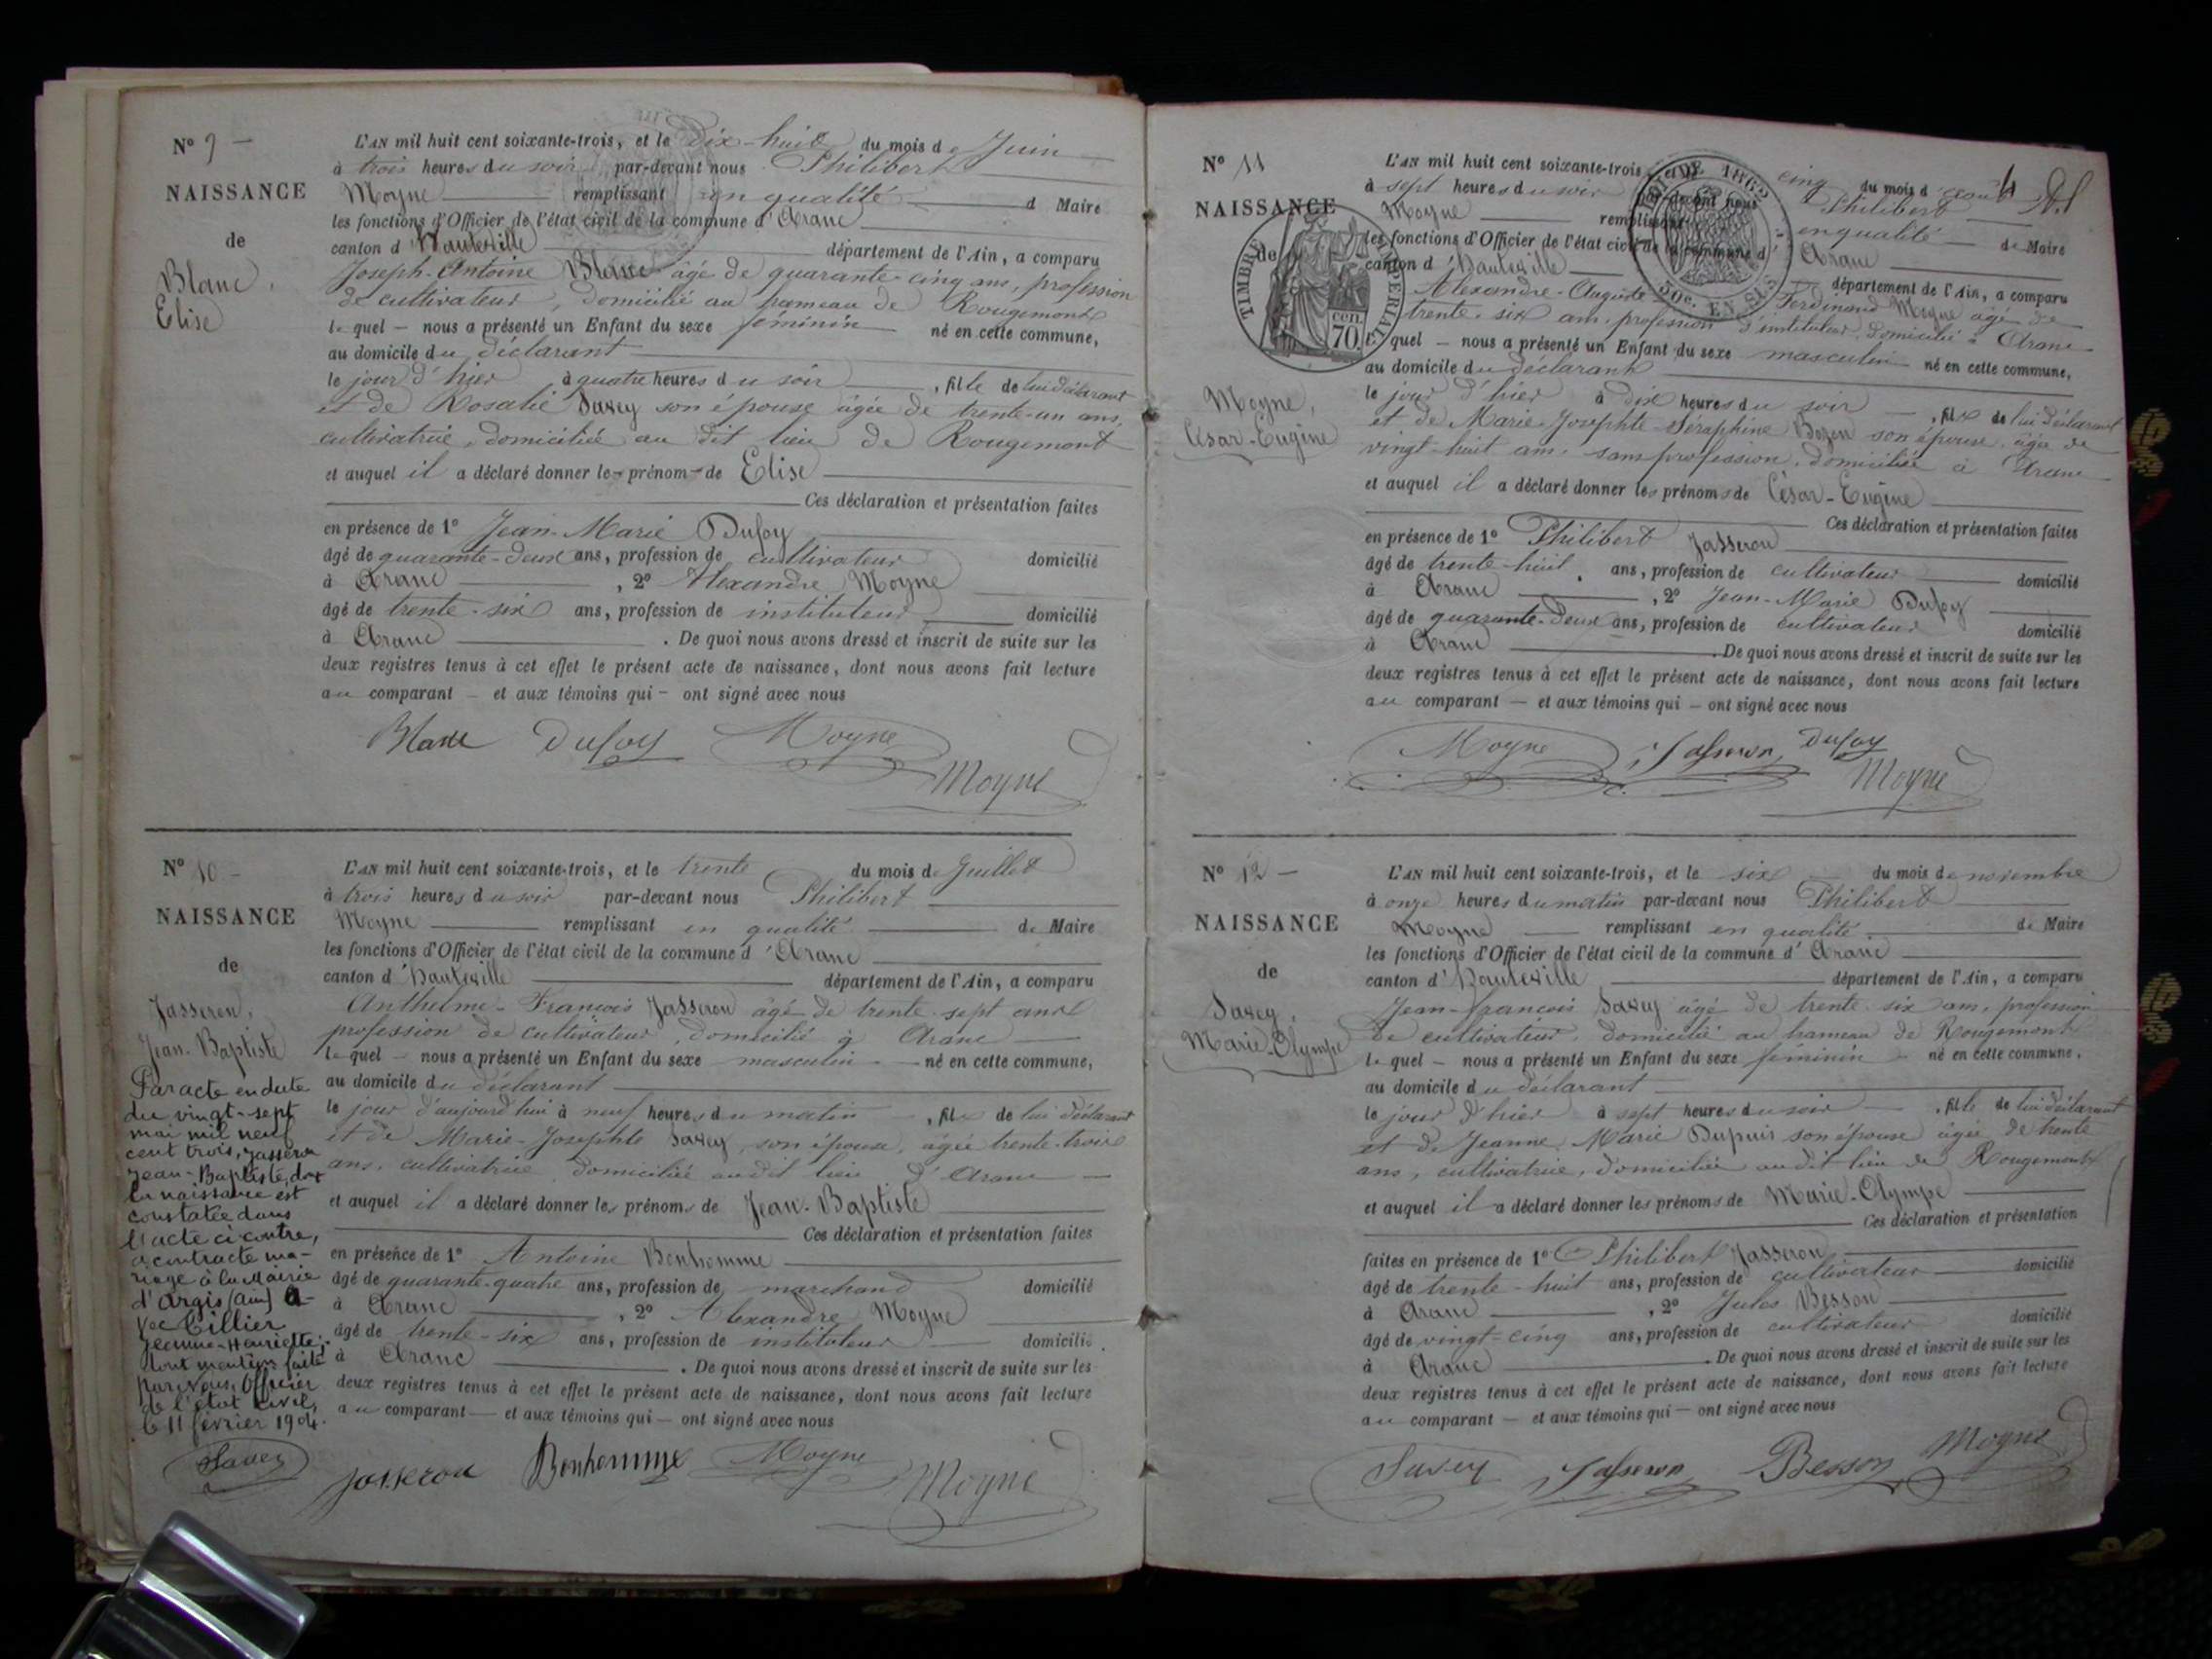 N° 9 —
NAISSANCE
de
Blanc,
Elise
L'AN mil huit cent soixante-trois, et le dix-huit du mois de Juin
à trois heures du soir par-devant nous Philibert
Moyne remplissant en qualité d Maire
les fonctions d'Officier de l'état civil de la commune d'Aranc
canton d'Hauteville département de l'Ain, a comparu
Joseph-Antoine Blanc âgé de quarante-cinq ans, profession
de cultivateur, domicilié au hameau de Rougemont
lequel — nous a présenté un Enfant du sexe féminin né en cette commune,
au domicile du déclarant
le jour d'hier à quatre heures du soir, fille de lui déclarant
et de Rosalie Savey son épouse âgée de trente-un ans,
cultivatrice, domiciliée au dit lieu de Rougemont
et auquel il a déclaré donner le prénom de Elise
Ces déclaration et présentation faites
en présence de 1° Jean-Marie Dufoy
âgé de quarante-deux ans, profession de cultivateur domicilié
à Aranc, 2° Alexandre Moyne
âgé de trente-six ans, profession de instituteur domicilié
à Aranc. De quoi nous avons dressé et inscrit de suite sur les
deux registres tenus à cet effet le présent acte de naissance, dont nous avons fait lecture
au comparant — et aux témoins qui — ont signé avec nous
Blanc Dufoy Moyne
Moyne
N° 10 —
NAISSANCE
de
Jasseron,
Jean-Baptiste
Par acte en date
du vingt-sept
mai mil neuf
cent trois, Jasseron
Jean-Baptiste, dont
la naissance est
constatée dans
l'acte ci-contre,
a contracté ma-
riage à la Mairie
d'Argis (Ain) a-
vec Billier
Jeanne-Henriette;
dont mention faite
par Nous, Officier
de l'état civil,
le 11 février 1904.
Savey
L'AN mil huit cent soixante-trois, et le trente du mois de Juillet
à trois heures du soir par-devant nous Philibert
Moyne remplissant en qualité de Maire
les fonctions d'Officier de l'état civil de la commune d'Aranc
canton d'Hauteville département de l'Ain, a comparu
Anthelme-François Jasseron âgé de trente-sept ans
profession de cultivateur, domicilié à Aranc
lequel — nous a présenté un Enfant du sexe masculin — né en cette commune,
au domicile du déclarant
le jour d'aujourd'hui à neuf heures du matin, fils de lui déclarant
et de Marie-Josephte Savey, son épouse, âgée trente-trois
ans, cultivatrice domiciliée audit lieu d'Aranc —
et auquel il a déclaré donner les prénoms de Jean-Baptiste
Ces déclaration et présentation faites
en présence de 1° Antoine Bonhomme
âgé de quarante-quatre ans, profession de marchand domicilié
à Aranc, 2° Alexandre Moyne
âgé de trente-six ans, profession de instituteur domicilié
à Aranc. De quoi nous avons dressé et inscrit de suite sur les
deux registres tenus à cet effet le présent acte de naissance, dont nous avons fait lecture
au comparant — et aux témoins qui — ont signé avec nous
Jasseron Bonhomme Moyne
Moyne
N° 11
NAISSANCE
de
TIMBRE IMPERIAL
cen. 70
LOI DE 1862
50c. EN SUS
Moyne,
César-Eugène
L'AN mil huit cent soixante-trois, et le cinq du mois d'août
à sept heures du soir par-devant nous Philibert
Moyne remplissant en qualité de Maire
les fonctions d'Officier de l'état civil de la commune d'Aranc
canton d'Hauteville département de l'Ain, a comparu
Alexandre-Auguste Ferdinand Moyne âgé de
trente-six ans, profession d'instituteur, domicilié à Aranc
lequel — nous a présenté un Enfant du sexe masculin né en cette commune,
au domicile du déclarant
le jour d'hier à dix heures du soir —, fils de lui déclarant
et de Marie-Josephte-Séraphine Bozon son épouse, âgée de
vingt-huit ans, sans profession, domiciliée à Aranc
et auquel il a déclaré donner les prénoms de César-Eugène
Ces déclaration et présentation faites
en présence de 1° Philibert Jasseron
âgé de trente-huit ans, profession de cultivateur domicilié
à Aranc, 2° Jean-Marie Dufoy
âgé de quarante-deux ans, profession de cultivateur domicilié
à Aranc. De quoi nous avons dressé et inscrit de suite sur les
deux registres tenus à cet effet le présent acte de naissance, dont nous avons fait lecture
au comparant — et aux témoins qui — ont signé avec nous
Moyne Jasseron Dufoy
Moyne
N° 12 —
NAISSANCE
de
Savey,
Marie-Olympe
L'AN mil huit cent soixante-trois, et le six du mois de novembre
à onze heures du matin par-devant nous Philibert
Moyne remplissant en qualité de Maire
les fonctions d'Officier de l'état civil de la commune d'Aranc
canton d'Hauteville département de l'Ain, a comparu
Jean-François Savey âgé de trente-six ans, profession
de cultivateur, domicilié au hameau de Rougemont
lequel — nous a présenté un Enfant du sexe féminin — né en cette commune,
au domicile du déclarant
le jour d'hier à sept heures du soir —, fille de lui déclarant
et de Jeanne Marie Dupuis son épouse âgée de trente
ans, cultivatrice, domiciliée au dit lieu de Rougemont
et auquel il a déclaré donner les prénoms de Marie-Olympe
Ces déclaration et présentation
faites en présence de 1° Philibert Jasseron
âgé de trente-huit ans, profession de cultivateur domicilié
à Aranc, 2° Jules Besson
âgé de vingt-cinq ans, profession de cultivateur domicilié
à Aranc. De quoi nous avons dressé et inscrit de suite sur les
deux registres tenus à cet effet le présent acte de naissance, dont nous avons fait lecture
au comparant — et aux témoins qui — ont signé avec nous
Savey Jasseron Besson Moyne